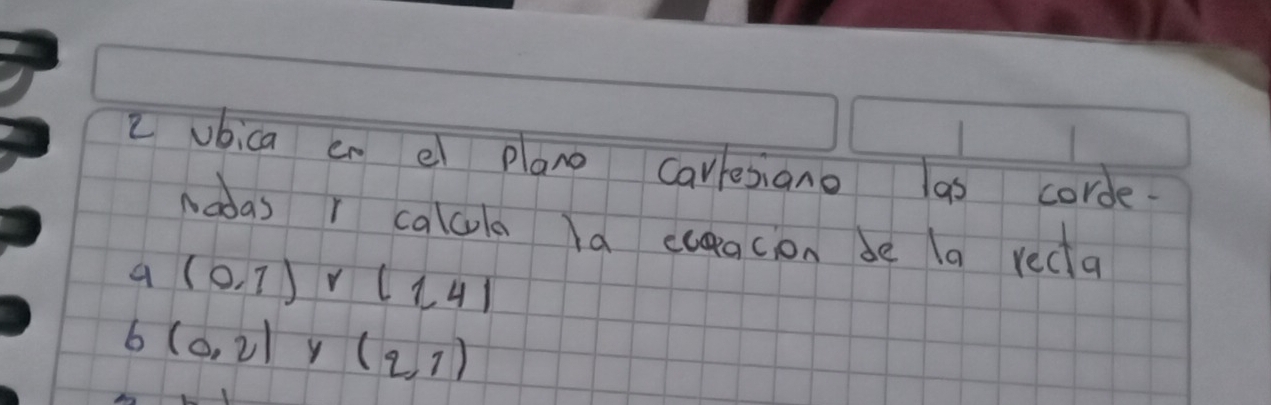 2 Ubica en el plano cartesiano las corde-
nadas y calcula la ecuacion de la recta
a (0,1) y (1,4)
b (0,2) y (2,1)